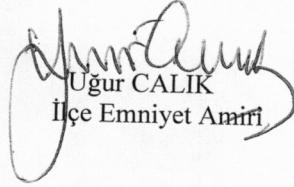 Uğur CALIK
İlçe Emniyet Amiri